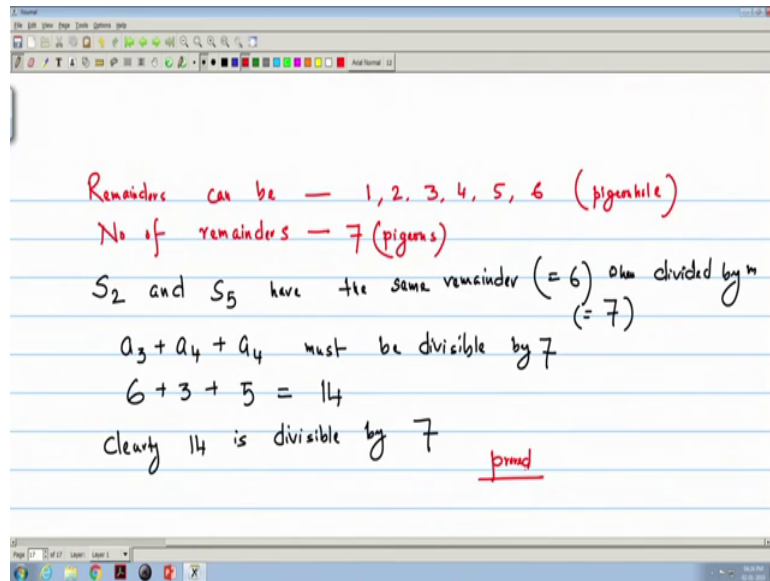 Journal
File Edit View Page Tools Options Help
Arial Normal 12
Remainders can be — 1, 2, 3, 4, 5, 6 (pigeonhole)
No of remainders — 7 (pigeons)
S2 and S5 have the same remainder (= 6) when divided by m
(= 7)
a3 + a4 + a4 must be divisible by 7
6 + 3 + 5 = 14
Clearly 14 is divisible by 7
proved
Page 17 of 17 Layer: Layer 1